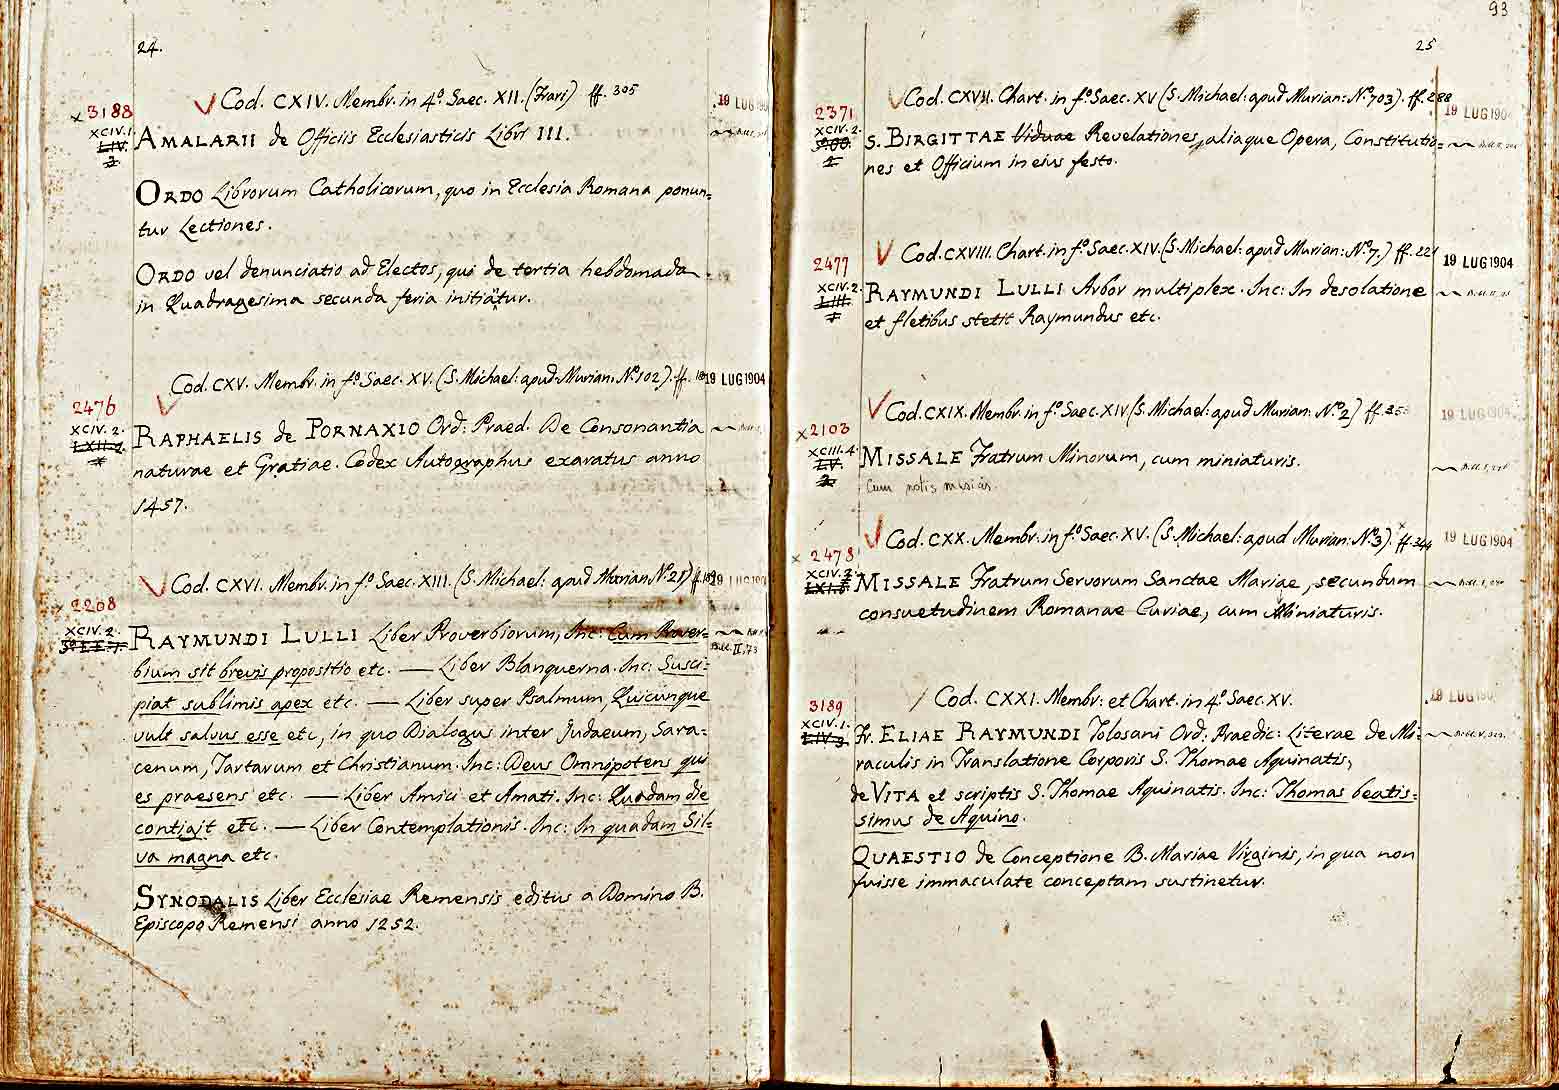 24.
Cod. CXIV. Membr. in 4.º Saec. XII. (Frari) ff. 305
x 3188
19 LUG
XCIV. 1.
LIV.
2
AMALARII de Officiis Ecclesiasticis Libri III.
ORDO Librorum Catholicorum, quo in Ecclesia Romana ponun=
tur Lectiones.
ORDO vel denunciatio ad Electos, qui de tertia hebdomada
in Quadragesima secunda feria initiatur.
Cod. CXV. Membr. in fº. Saec. XV. (S. Michael: apud Murian. Nº. 102). ff.
19 LUG 1904
2476
XCIV. 2.
RAPHAELIS de PORNAXIO Ord: Praed. De Consonantia
naturae et Gratiae. Codex Autographus exaratus anno
1457.
Cod. CXVI. Membr. in fº. Saec. XIII. (S. Michael: apud Murian Nº. 28) ff.
19 LUG
x 2208
XCIV. 2.
RAYMUNDI LULLI Liber Proverbiorum, Inc: Cum Prover=
II, 73
bium sit brevis propositio etc. — Liber Blanquerna. Inc: Susci=
piat sublimis apex etc. — Liber super Psalmum, Quicunque
vult salvus esse etc, in quo Dialogus inter Judaeum, Sara=
cenum, Tartarum et Christianum. Inc: Deus Omnipotens qui
es praesens etc. — Liber Amici et Amati. Inc: Quadam die
contigit etc. — Liber Contemplationis. Inc: In quadam Sil=
va magna etc.
SYNODALIS Liber Ecclesiae Remensis editus a Domino B.
Episcopo Remensi anno 1252.
93
25
Cod. CXVII. Chart. in fº. Saec. XV (S. Michael: apud Murian: Nº. 703). ff. 288
2371
19 LUG 1904
XCIV. 2.
S. BIRGITTAE Viduae Revelationes, aliaque Opera, Constitutio=
nes et Officium in eius festo.
Cod. CXVIII. Chart. in fº. Saec. XIV. (S. Michael: apud Murian: Nº. 7.) ff.
2477
19 LUG 1904
XCIV. 2.
LIII.
RAYMUNDI LULLI Arbor multiplex. Inc: In desolatione
et fletibus stetit Raymundus etc.
Cod. CXIX. Membr. in fº. Saec. XIV (S. Michael: apud Murian: Nº. 2) ff.
19 LUG 1904
x 2103
XCIII. 4.
LV.
2
MISSALE Fratrum Minorum, cum miniaturis.
Cum notis musicis.
Cod. CXX. Membr. in fº. Saec. XV. (S. Michael: apud Murian: Nº. 3). ff. 344
19 LUG 1904
x 2478
XCIV. 2.
MISSALE Fratrum Servorum Sanctae Mariae, secundum
consuetudinem Romanae Curiae, cum Miniaturis.
Cod. CXXI. Membr: et Chart. in 4º. Saec. XV.
19 LUG
3189
XCIV. 1.
LIV. 3.
Fr. ELIAE RAYMUNDI Tolosani Ord. Praedic: Literae de Mi=
raculis in Translatione Corporis S. Thomae Aquinatis,
de VITA et scriptis S. Thomae Aquinatis. Inc: Thomas beatis=
simus de Aquino.
QUAESTIO de Conceptione B. Mariae Virginis, in qua non
fuisse immaculate conceptam sustinetur.